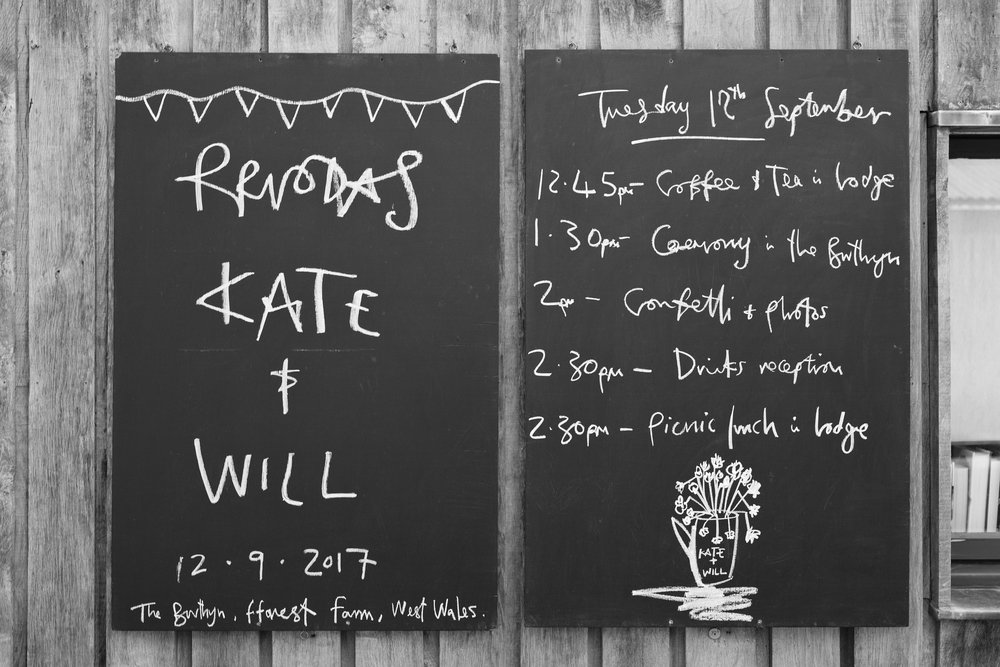 PRIODAS
KATE
&
WILL
12.9.2017
The Bwthyn, fforest farm, West Wales.
Tuesday 12th September
12.45pm - Coffee & Tea in lodge
1.30pm - Ceremony in the Bwthyn
2pm - Confetti & photos
2.30pm - Drinks reception
2.30pm - Picnic lunch in lodge
KATE
+
WILL